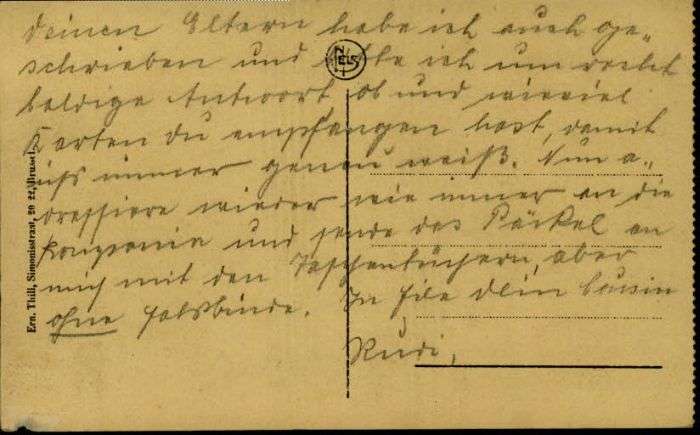 Deinen Eltern habe ich auch ge-
schrieben und bitte ich um recht
baldige Antwort ob und wieviel
Karten du empfangen hast, damit
ichs immer genau weiß. Nun a-
dressiere wieder wie immer an die
Kompanie und sende das Päckel an
mich mit den Taschentüchern, aber
ohne Halsbinde. In Eile Dein Cousin
Rudi,
NELS
Ern. Thill, Simonisstraat, 20 22, Brussel.